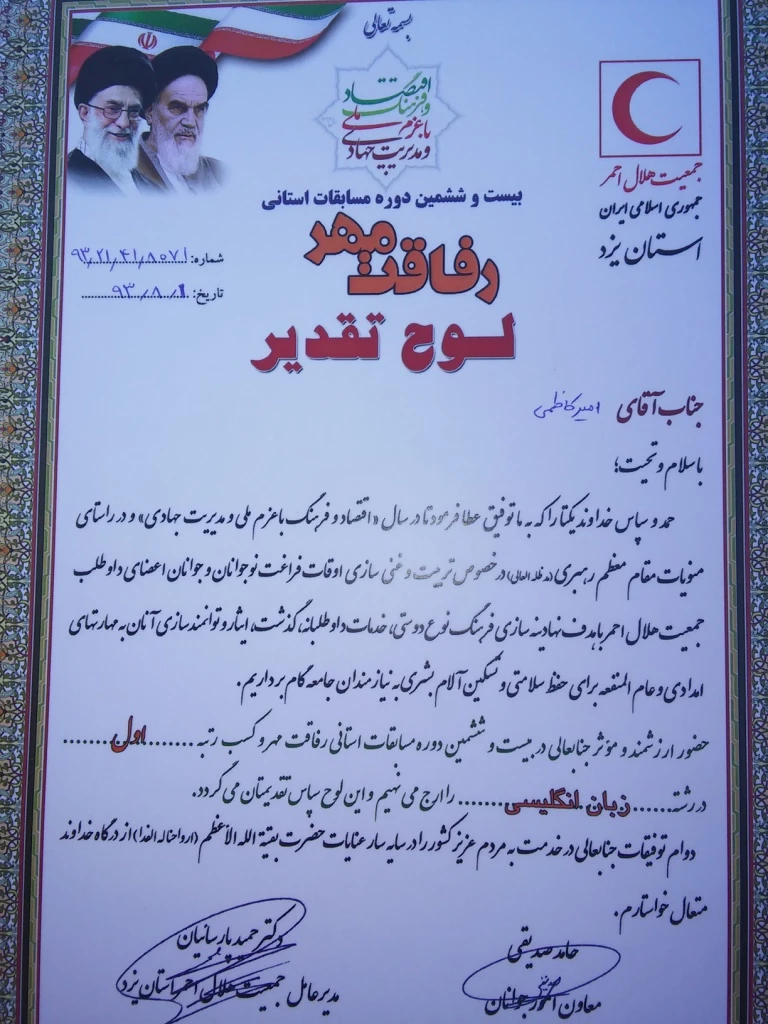 بسمه تعالی
اقتصاد
و فرهنگ
با عزم ملی
و مدیریت جهادی
جمعیت هلال احمر
جمهوری اسلامی ایران
استان یزد
بیست و ششمین دوره مسابقات استانی
رفاقت مهر
شماره: ۹۳,۲۱,۴۱,۸۰۷۱
تاریخ: ۹۳,۸,۱
لوح تقدیر
جناب آقای امیر کاظمی
با سلام و تحیت؛
حمد و سپاس خداوند یکتا را که به ما توفیق عطا فرمود تا در سال «اقتصاد و فرهنگ با عزم ملی و مدیریت جهادی» و در راستای
منویات مقام معظم رهبری (مد ظله العالی) در خصوص تربیت و غنی سازی اوقات فراغت نوجوانان و جوانان اعضای داوطلب
جمعیت هلال احمر با هدف نهادینه سازی فرهنگ نوع دوستی، خدمات داوطلبانه، گذشت، ایثار و توانمندسازی آنان به مهارتهای
امدادی و عام المنفعه برای حفظ سلامتی و تسکین آلام بشری به نیازمندان جامعه گام برداریم.
حضور ارزشمند و مؤثر جنابعالی در بیست و ششمین دوره مسابقات استانی رفاقت مهر و کسب رتبه ........ اول ........
در رشته...... زبان انگلیسی ....... را ارج می نهیم و این لوح سپاس تقدیمتان می گردد.
دوام توفیقات جنابعالی در خدمت به مردم عزیز کشور را در سایه سار عنایات حضرت بقیة الله الأعظم (ارواحناله الفدا) از درگاه خداوند
متعال خواستارم.
حامد صدیقی
معاون امور جوانان
دکتر حمید پارسائیان
مدیرعامل جمعیت هلال احمر استان یزد